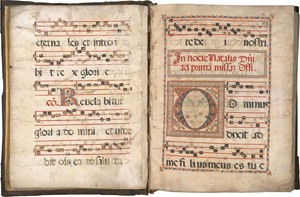 eterna les et introi
bi t te x glori e
cō. Revelabitur
gloria do mini et
bit o
re de i nostri.
In nocte Natalis Dni
ad primā missā Offi.
D minus
dixit ad
me fi li us meus es tu e